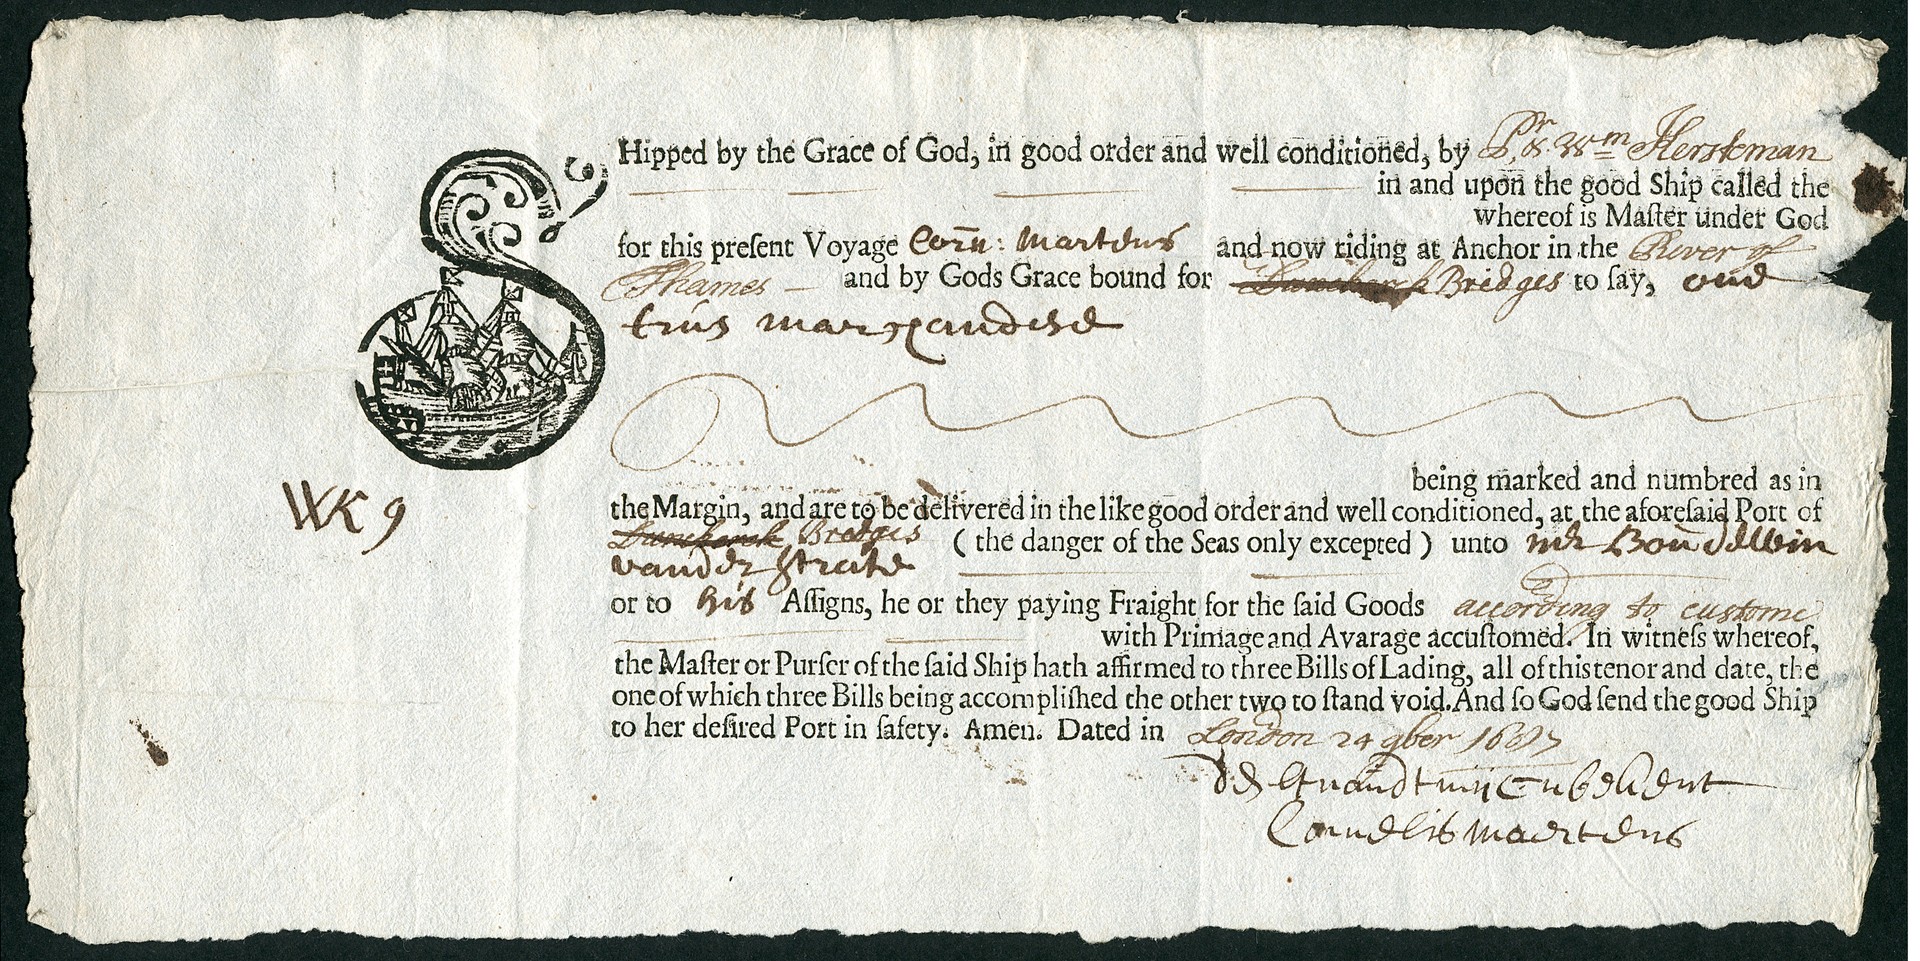 SHipped by the Grace of God, in good order and well conditioned, by Pr. & Wm Kersteman
in and upon the good Ship called the
whereof is Maſter under God
for this preſent Voyage Corn: Martens and now riding at Anchor in the River of
Thames and by Gods Grace bound for Duncherck Bridges to ſay, one
trus
being marked and numbred as in
WK 9
the Margin, and are to be delivered in the like good order and well conditioned, at the aforeſaid Port of
Duncherck Bredges (the danger of the Seas only excepted) unto mr Boudewin
vander Strate
or to his Aſſigns, he or they paying Fraight for the ſaid Goods according to custome
with Primage and Avarage accuſtomed. In witneſs whereof,
the Maſter or Purſer of the ſaid Ship hath affirmed to three Bills of Lading, all of this tenor and date, the
one of which three Bills being accompliſhed the other two to ſtand void. And ſo God ſend the good Ship
to her deſired Port in ſafety. Amen. Dated in London 24 9ber
Cornelis Maertens